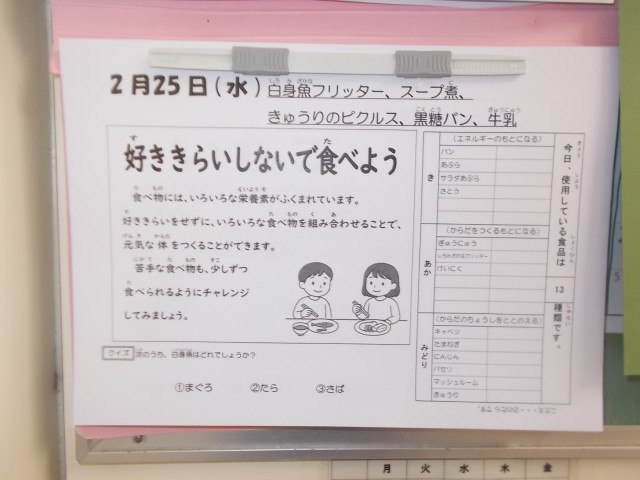 2月25日(水)白身魚フリッター、スープ煮、
きゅうりのピクルス、黒糖パン、牛乳
好ききらいしないで食べよう
食べ物には、いろいろな栄養素がふくまれています。
好きらいをせずに、いろいろな食べ物を組み合わせることで、
元気な体をつくることができます。
苦手な食べ物も、少しずつ
食べられるようにチャレンジ
してみましょう。
クイズ 次のうち、白身魚はどれでしょうか?
①まぐろ ②たら ③さば
今日、使用している食品は
13
種類です。
き
(エネルギーのもとになる)
パン
あぶら
サラダあぶら
さとう
あか
(からだをつくるもとになる)
ぎゅうにゅう
しろみざかなフリッター
けいにく
みどり
(からだのちょうしをととのえる)
キャベツ
たまねぎ
にんじん
パセリ
マッシュルーム
きゅうり
こたえ・・・②のたら です。
月 火 水 木 金